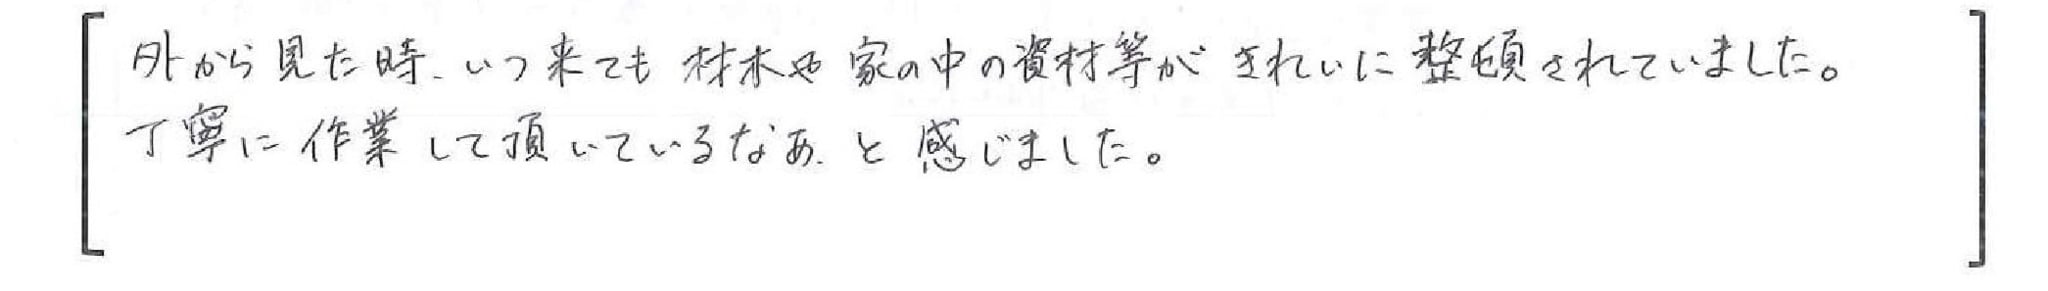 外から見た時、いつ来ても材木や家の中の資材等がきれいに整頓されていました。
丁寧に作業して頂いているなあ、と感じました。